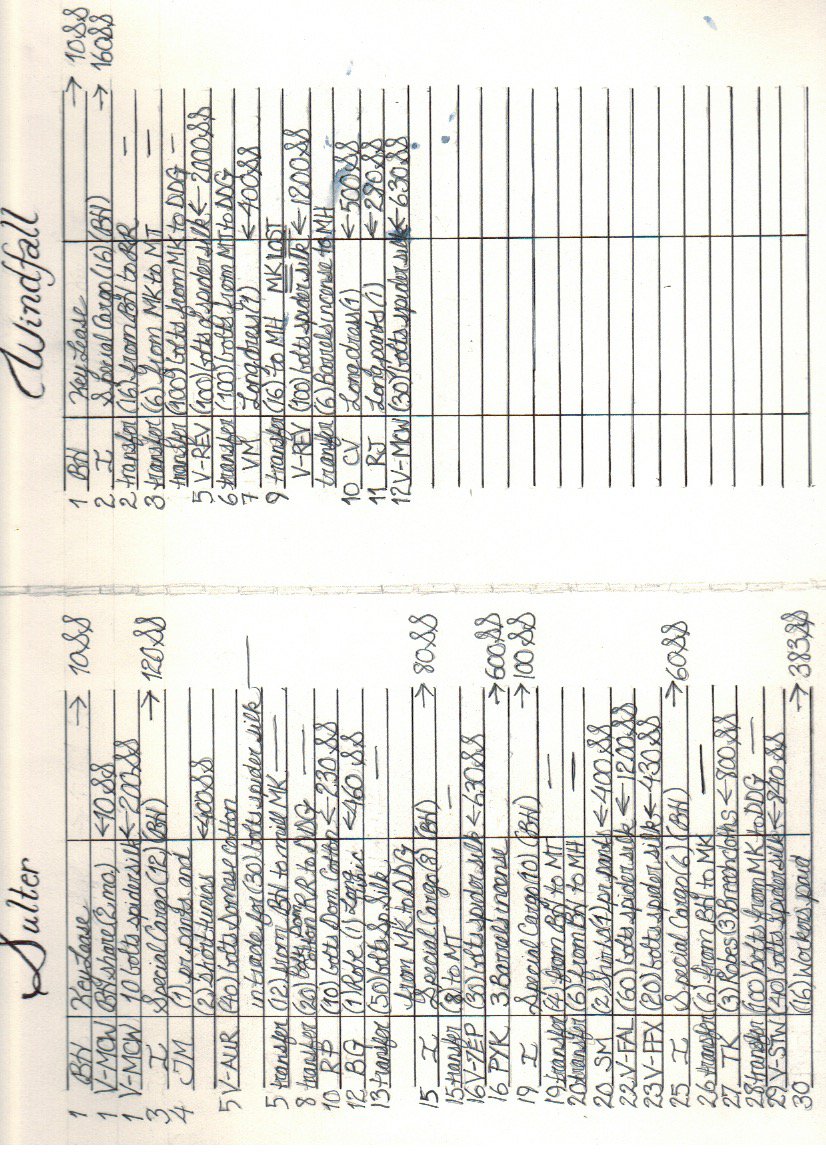 Sulter
1 BH Key Lease → 10SS
1 V-MCW (BH share (2 mo.) ← 10SS
1 V-MCW 10 bolts spider silk ← 200SS
3 I Special Cargo (12) (BH) → 120SS
4 JM (1) pr pants and
(2) short tunics ← 400SS
5 V-AUR (40) bolts Damask Cotton
in trade for (30) bolts spider silk —
5 transfer (12) from BH to mill MK —
8 transfer (20) bolts Dom Cotton RR to DDG —
10 RB (10) bolts Dom Cotton ← 230SS
12 BG (1) Robe (1) Long Tunic ← 460SS
13 transfer (50) bolts Sp. Silk —
from MK to DDG
15 I Special Cargo (8) (BH) → 80SS
15 transfer (8) to MT —
16 V-ZEP (30) bolts spider silk ← 630SS
16 PYK 3 Barrels incense → 600SS
19 I Special Cargo (10) (BH) → 100SS
19 transfer (4) from BH to MT —
20 transfer (6) from BH to MH —
20 SM (2) Shirts (1) pr pant ← 400SS
22 V-FAL (60) bolts spider silk ← 1200SS
23 V-FFX (20) bolts spider silk ← 430SS
25 I Special Cargo (6) (BH) → 60SS
26 transfer (6) from BH to MK —
27 TK (3) Robes (3) Breechcloths ← 800SS
28 transfer (100) bolts from MK to DDG —
29 V-STN (40) bolts spider silk ← 840SS
30 (16) Workers paid → 383SS
Windfall
1 BH Key Lease → 10SS
2 I Special Cargo (16) (BH) → 160SS
2 transfer (16) from BH to RR —
3 transfer (6) from MK to MT —
transfer (100) bolts from MK to DDG —
5 V-REV (100) bolts of spider silk ← 2000SS
6 transfer (100) bolts from MT to DDG
7 VM Long dress (1) ← 400SS
9 transfer (16) to MH MK LOST
V-REV (100) bolts spider silk ← 1200SS
transfer (6) Barrels incense to MH
10 CV Long dress (1) ← 500SS
11 RJ Long pants (1) ← 290SS
12 V-MCW (30) bolts spider silk ← 630SS